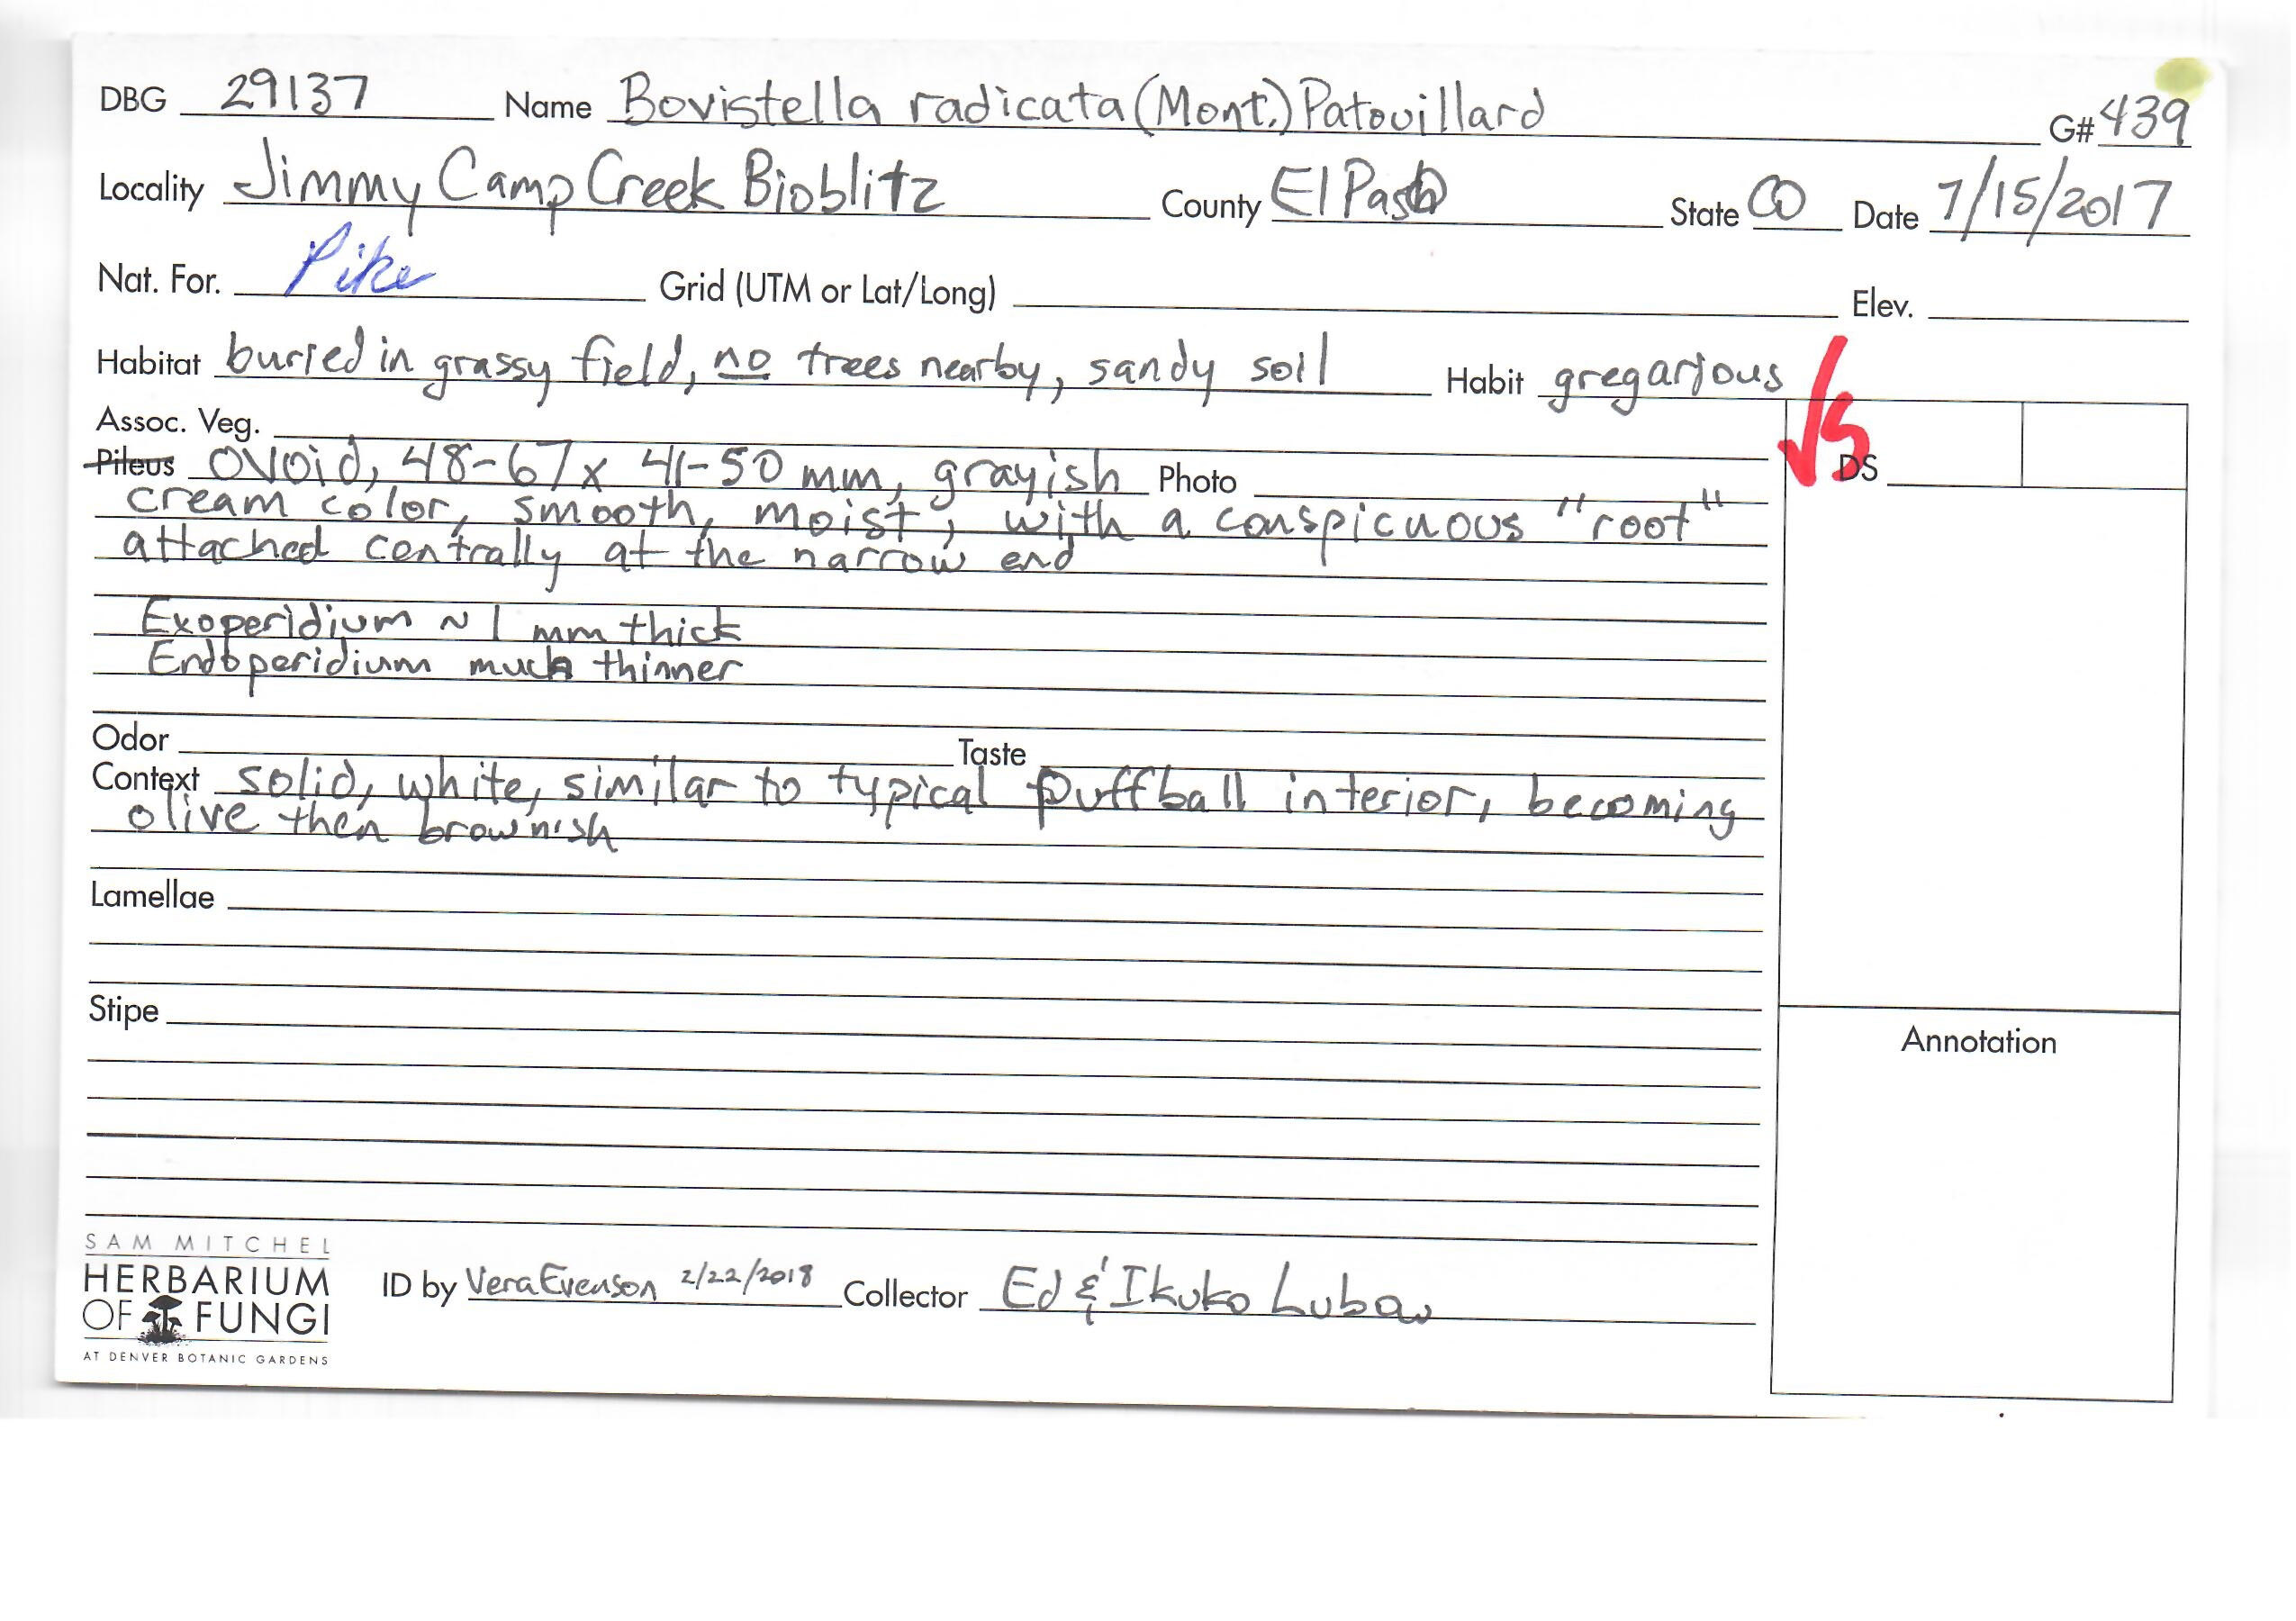 DBG 29137 Name Bovistella radicata (Mont.) Patouillard G# 439
Locality Jimmy Camp Creek Bioblitz County El Paso State CO Date 7/15/2017
Nat. For. Pike Grid (UTM or Lat/Long) Elev.
Habitat buried in grassy field, no trees nearby, sandy soil Habit gregarious
Assoc. Veg.
Pileus ovoid, 48-67 x 41-50 mm, grayish Photo
DS
cream color, smooth, moist, with a conspicuous "root"
attached centrally at the narrow end
Exoperidium ~ 1 mm thick
Endoperidium much thinner
Odor Taste
Context solid, white, similar to typical puffball interior, becoming
olive then brownish
Lamellae
Stipe
Annotation
SAM MITCHEL
HERBARIUM
OF FUNGI
AT DENVER BOTANIC GARDENS
ID by Vera Evenson 2/22/2018 Collector Ed & Ikuko Lubow